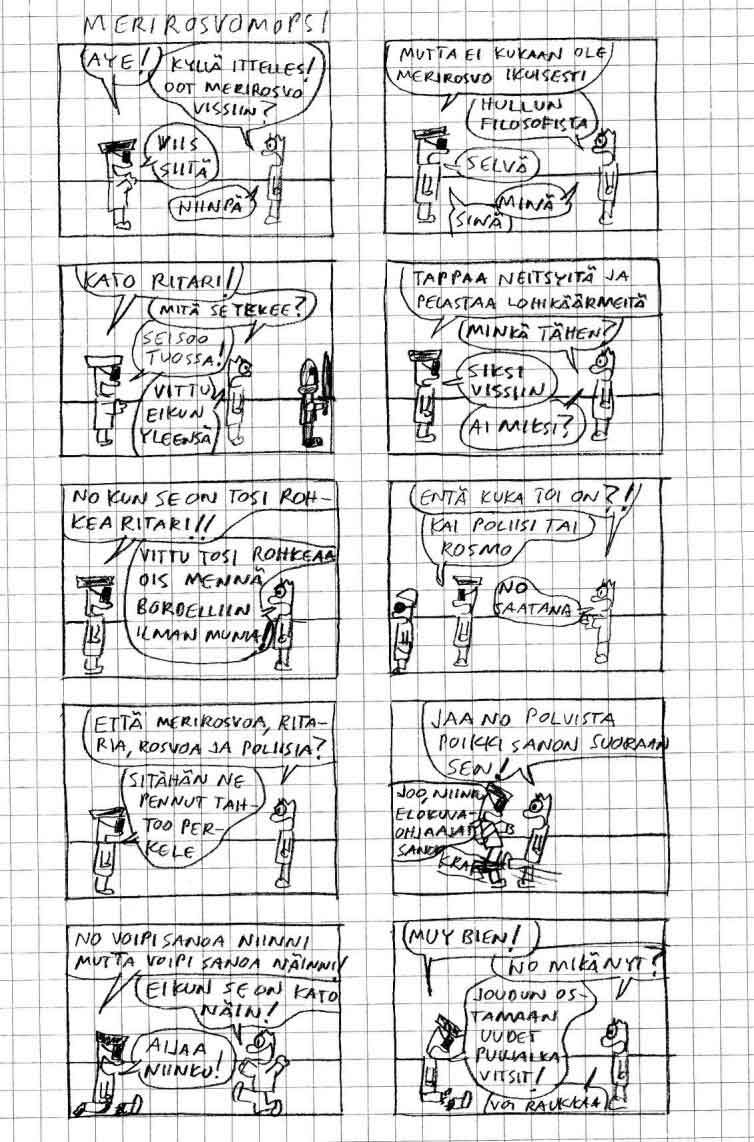 MERIROSVOMOPSI
AYE!
KYLLÄ ITTELLES!
OOT MERIROSVO
VISSIIN?
VIIS
SIITÄ
NIINPÄ
MUTTA EI KUKAAN OLE
MERIROSVO IKUISESTI
HULLUN
FILOSOFISTA
SELVÄ
MINÄ
SINÄ
KATO RITARI!
MITÄ SE TEKEE?
SEISOO
TUOSSA!
VITTU
EIKUN
YLEENSÄ
TAPPAA NEITSYITÄ JA
PELASTAA LOHIKÄÄRMEITÄ
MINKÄ TÄHEN?
SIKSI
VISSIIN
AI MIKSI?
NO KUN SE ON TOSI ROH-
KEA RITARI!!
VITTU TOSI ROHKEAA
OIS MENNÄ
BORDELLIIN
ILMAN MUNIA!
ENTÄ KUKA TOI ON?!
KAI POLIISI TAI
ROSMO
NO
SAATANA
ETTÄ MERIROSVOA, RITA-
RIA, ROSVOA JA POLIISIA?
SITÄHÄN NE
PENNUT TAH-
TOO PER-
KELE
JAA NO POLVISTA
POIKKI SANON SUORAAN
SEN!
JOO, NIINK
ELOKUVA-
OHJAAJAT
SANOO
KRAK
NO VOIPI SANOA NIINNI
MUTTA VOIPI SANOA NÄINNI!
EIKUN SE ON KATO
NÄIN!
AIJAA
NIINKÖ!
MUY BIEN!
NO MIKÄ NYT?
JOUDUN OS-
TAMAAN
UUDET
PUUJALKA
VITSIT!
VOI RAUKKAA